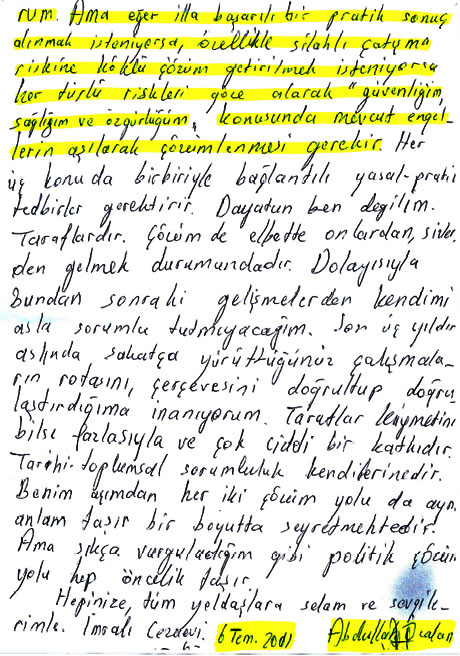 rum. Ama eğer illa başarılı bir pratik sonuç
alınmak isteniyorsa, özellikle silahlı çatışma
riskine köklü çözüm getirilmek isteniyorsa
her türlü riskleri göze alarak "güvenliğim,
sağlığım ve özgürlüğüm, konusunda mevcut engel-
lerin aşılarak çözümlenmesi gerekir. Her
üç konuda birbiriyle bağlantılı yasal-pratik
tedbirler gerektirir. Dayatan ben değilim.
Taraflardır. Çözüm de elbette onlardan, sizler
den gelmek durumundadır. Dolayısıyla
bundan sonraki gelişmelerden kendimi
asla sorumlu tutmıyacağım. Son üç yıldır
aslında sakatça yürüttüğünüz çalışmala-
rın rotasını, çerçevesini doğrultup doğru
laştırdığıma inanıyorum. Taraflar kıymetini
bilse fazlasıyla ve çok ciddi bir katkıdır.
Tarihi-toplumsal sorumluluk kendilerinedir.
Benim açımdan her iki çözüm yolu da aynı
anlam taşır bir boyutta seyretmektedir.
Ama sıkça vurguladığım gibi politik çözüm
yolu hep öncelik taşır.
Hepinize, tüm yoldaşlara selam ve sevgile-
rimle. İmralı Cezaevi. 6 Tem. 2011 Abdullah Öcalan